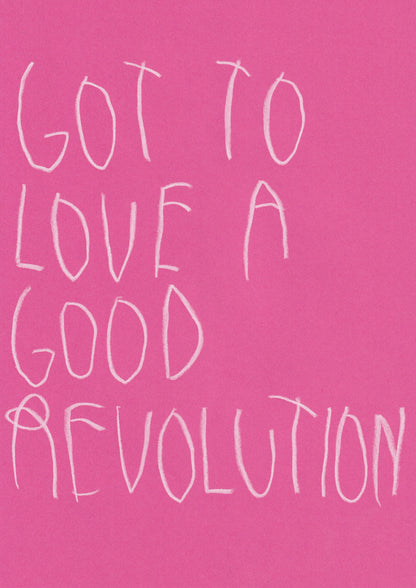 GOT TO
LOVE A
GOOD
REVOLUTION